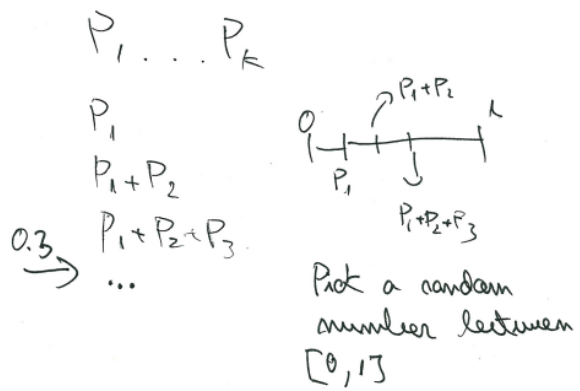 P₁ . . . P_k
P₁
P₁ + P₂
0.3 → P₁ + P₂ + P₃
...
P₁+P₂
0 1
P₁
P₁+P₂+P₃
Pick a random
number between
[0, 1]